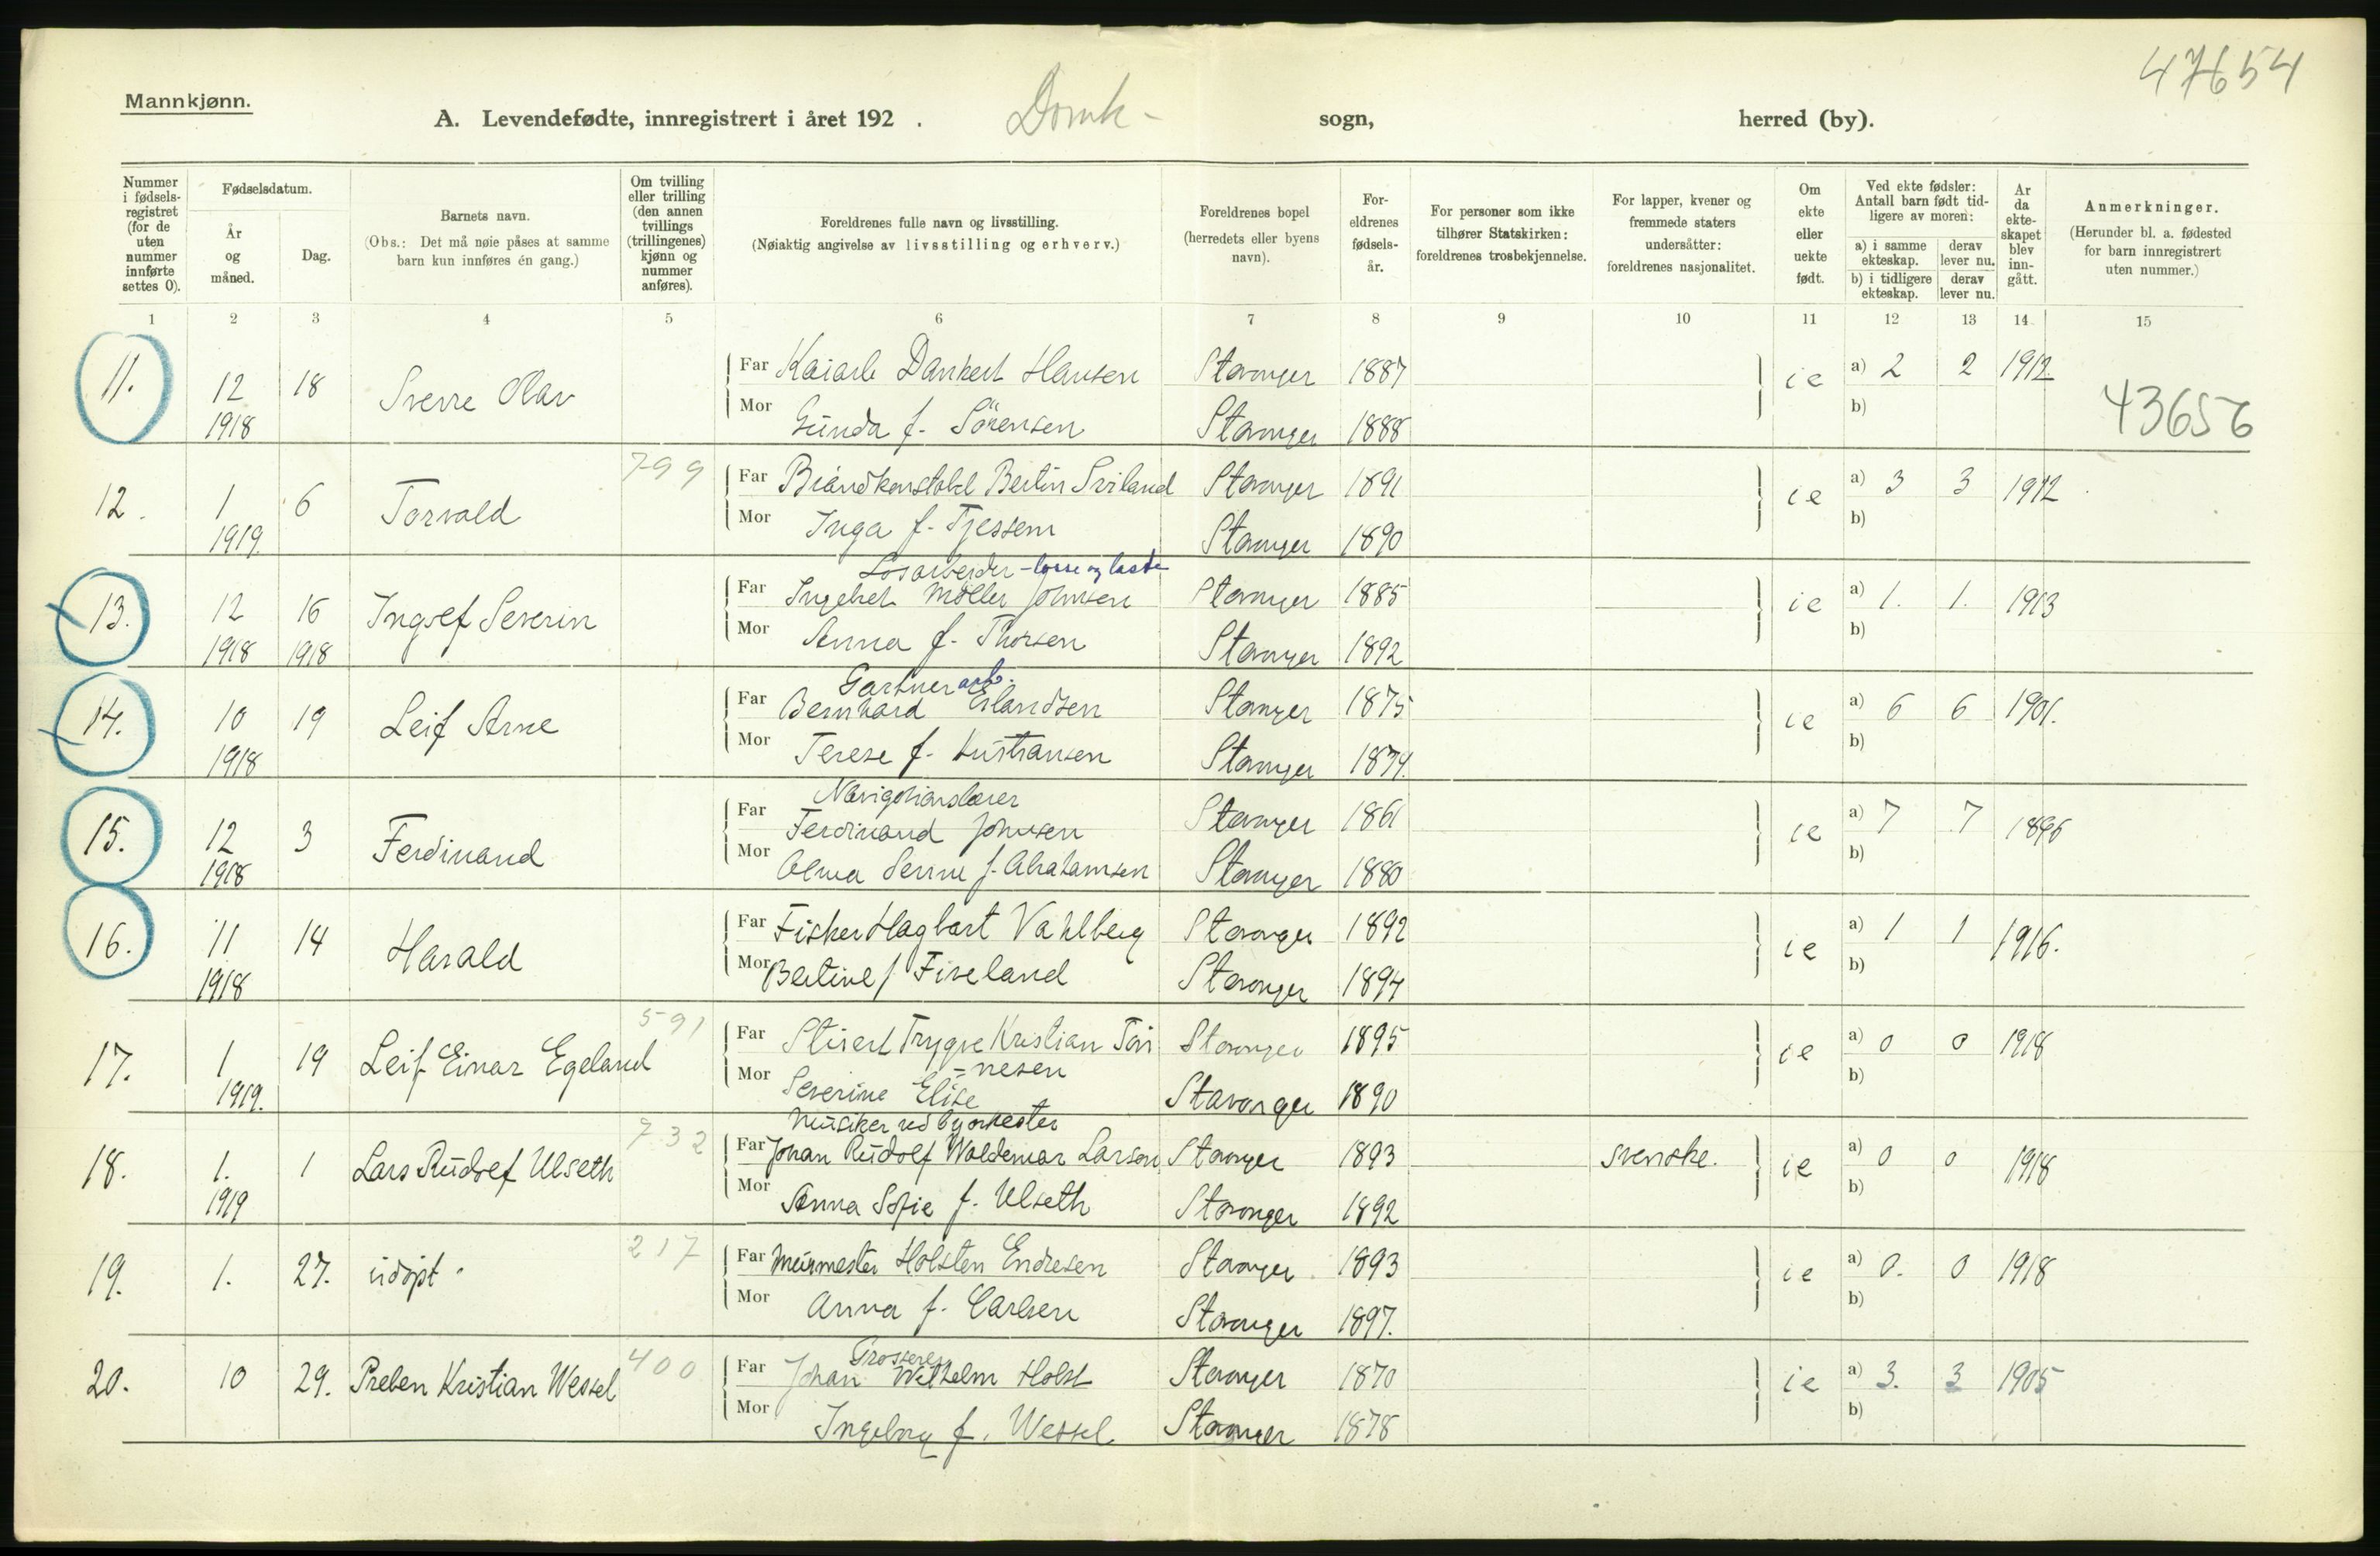 47654
Mannkjønn.
A. Levendefødte, innregistrert i året 192 . Domk- sogn, herred (by).
Nummer i fødsels-registret (for de uten nummer innførte settes 0).
Fødselsdatum.
År og måned.
Dag.
Barnets navn.
(Obs.: Det må nøie påses at samme barn kun innføres én gang.)
Om tvilling eller trilling (den annen tvillings (trillingenes) kjønn og nummer anføres).
Foreldrenes fulle navn og livsstilling.
(Nøiaktig angivelse av livsstilling og erhverv.)
Foreldrenes bopel (herredets eller byens navn).
For-eldrenes fødsels-år.
For personer som ikke tilhører Statskirken: foreldrenes trosbekjennelse.
For lapper, kvener og fremmede staters undersåtter: foreldrenes nasjonalitet.
Om ekte eller uekte født.
Ved ekte fødsler: Antall barn født tid-ligere av moren:
a) i samme ekteskap.
derav lever nu.
b) i tidligere ekteskap.
derav lever nu.
Ar da ekte-skapet blev inn-gått.
Anmerkninger.
(Herunder bl. a. fødested for barn innregistrert uten nummer.)
1 2 3 4 5 6 7 8 9 10 11 12 13 14 15
11. 12 18 Sverre Olav Far Kaiarb Dankert Hansen Stavanger 1887 ie a) 2 2 1912
1918 Mor Gunda f. Sörensen Stavanger 1888 b) 43656
799
12. 1 6 Torvald Far Brandkonstabel Bertin Sviland Stavanger 1891 ie a) 3 3 1912
1919. Mor Inga f. Tjessem Stavanger 1890 b)
Løsarbeider - losse og laste
13. 12 16 Ingolf Severin Far Ingebret Möller Johnsen Stavanger 1885 ie a) 1. 1. 1913
1918 1918 Mor Anna f. Thorsen Stavanger 1892 b)
Gartner arb.
14. 10 19 Leif Arne Far Bernhard Erlandsen Stavanger 1875 ie a) 6 6 1901.
1918 Mor Terese f. Kristiansen Stavanger 1874. b)
Navigationslærer
15. 12 3 Ferdinand Far Ferdinand Johnsen Stavanger 1861 ie a) 7 7
1918 Mor Alma f. Abrahamsen Stavanger 1880 b)
16. 11 14 Harald Far Fisker Hagbart Vahlberg Stavanger 1892 ie a) 1 1 1916.
1918 Mor Bertine f Fiveland Stavanger 1894 b)
591
17. 1 19 Leif Einar Egeland Far Stuert Trygve Kristian Tøn Stavanger 1895 ie a) 0 0 1918
= nesen
1919. Mor Severine Elise Stavanger 1890 b)
Musiker ved byorkester
732
18. 1. 1 Lars Rudolf Ulseth Far Johan Rudolf Waldemar Larson Stavanger 1893 svenske. ie a) 0 0 1918
1919 Mor Anna Sofie f. Ulseth Stavanger 1892 b)
217
19. 1. 27. udöpt Far Murmester Holsten Endresen Stavanger 1893 ie a) 0. 0 1918
Mor Anna f. Carlsen Stavanger 1897. b)
Grosserer
400
20. 10 29. Preben Kristian Wessel Far Johan Wilhelm Holst Stavanger 1870 ie a) 3. 3 1905
Mor Ingeborg f. Wessel Stavanger 1878 b)